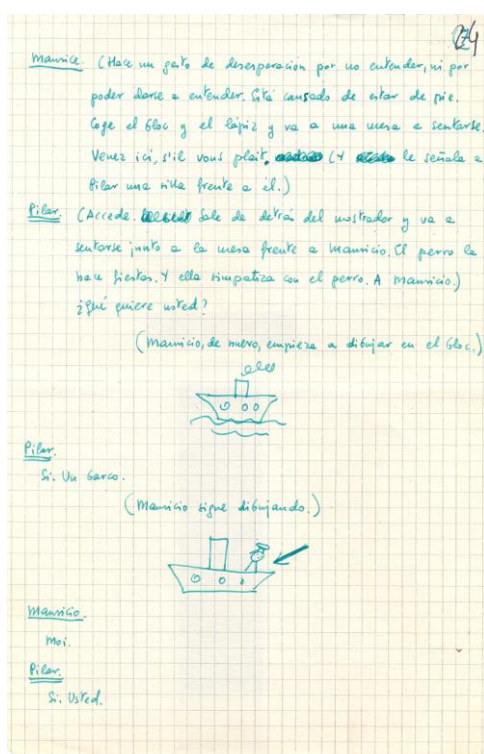 24
Maurice. (Hace un gesto de desesperación por no entender, ni por
poder darse a entender. Está cansado de estar de pie.
Coge el bloc y el lápiz y va a una mesa a sentarse.
Venez ici, s'il vous plait, (Y le señala a
Pilar una silla frente a él.)
Pilar. (Accede. Sale de detrás del mostrador y va a
sentarse junto a la mesa frente a Mauricio. El perro la
hace fiestas. Y ella simpatiza con el perro. A Mauricio.)
¿Qué quiere usted?
(Mauricio, de nuevo, empieza a dibujar en el bloc.)
Pilar.
Si. Un barco.
(Mauricio sigue dibujando.)
Mauricio.
Moi.
Pilar.
Si. Usted.